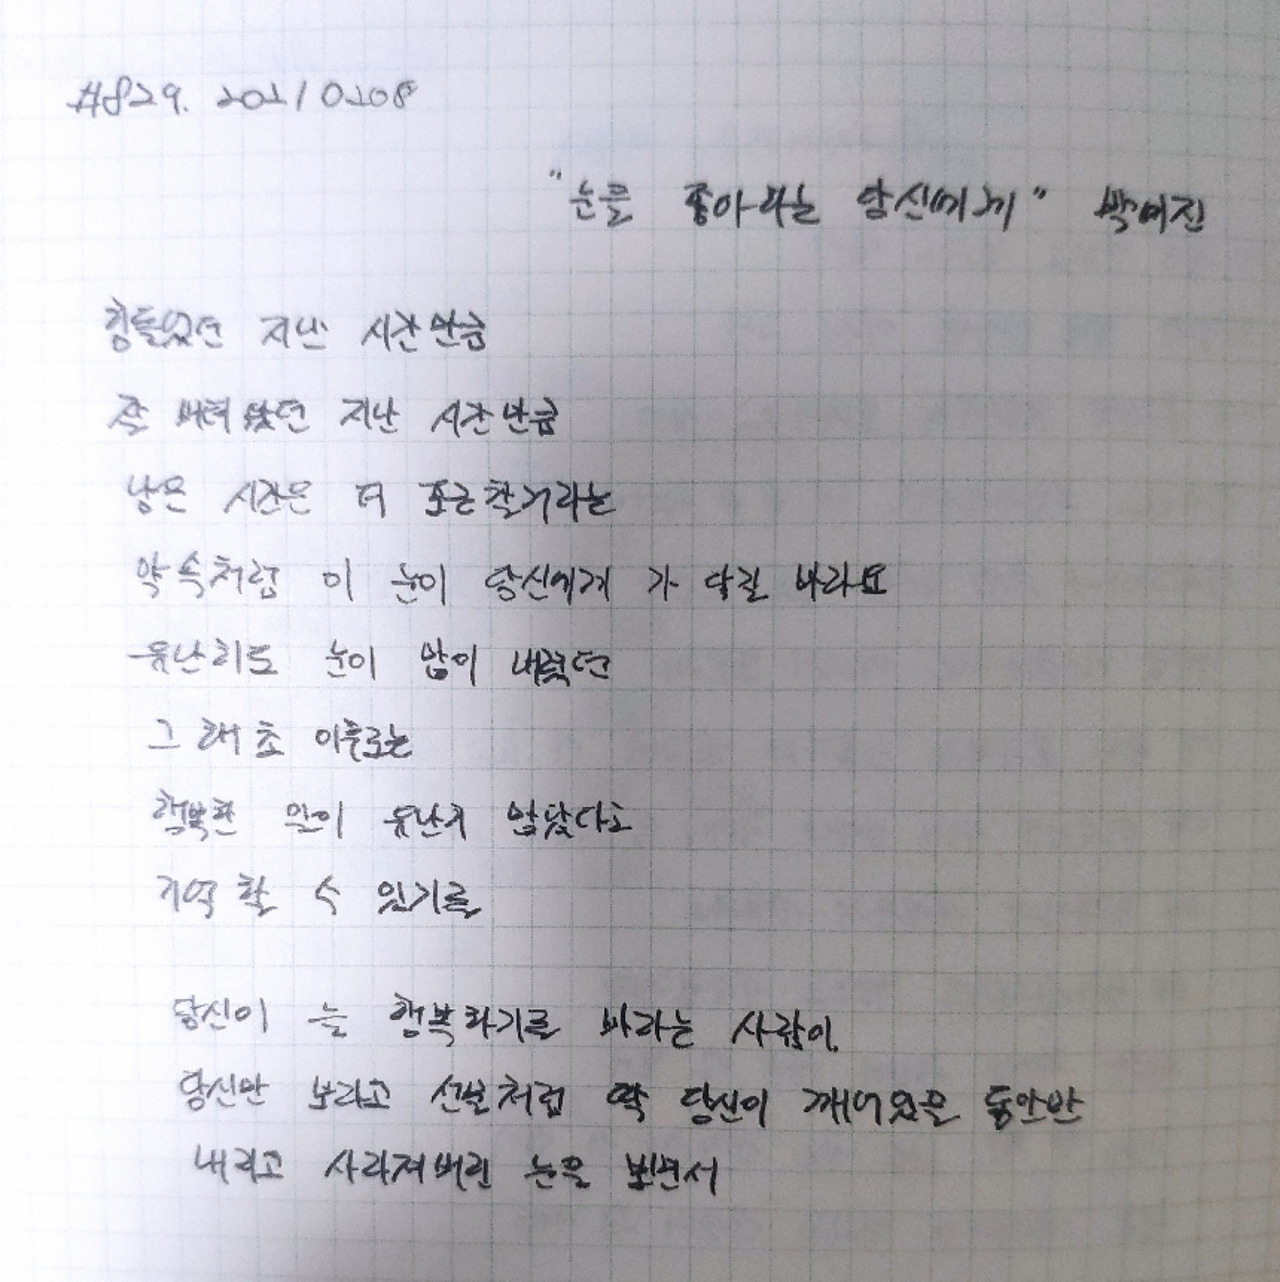 #829. 20210208
"눈을 좋아하는 당신에게" 박여진
힘들었던 지난 시간만큼
잘 버텨왔던 지난 시간만큼
남은 시간은 더 포근할거라는
약속처럼 이 눈이 당신에게 가 닿길 바라요
유난히도 눈이 많이 내렸던
그 해 초 이후로는
행복한 일이 유난히 많았다고
기억할 수 있기를
당신이 늘 행복하기를 바라는 사람이.
당신만 보라고 선물처럼 딱 당신이 깨어있을 동안만
내리고 사라져버린 눈을 보면서